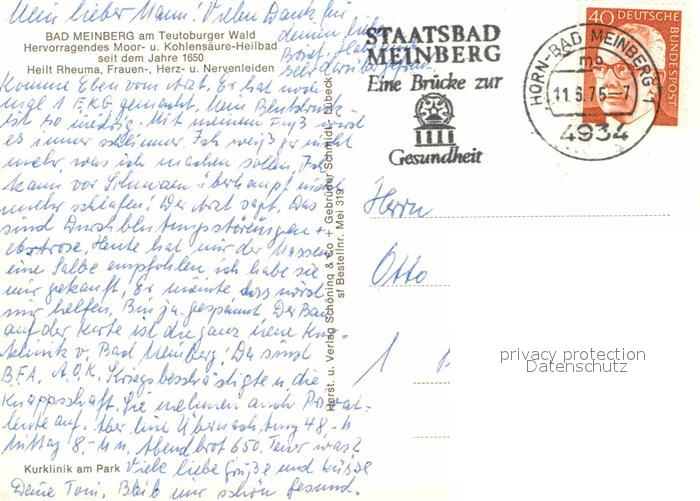 Mein lieber Mann! Vielen Dank für
deinen lieben
Brief. Hat mich
BAD MEINBERG am Teutoburger Wald
Hervorragendes Moor- u. Kohlensäure-Heilbad
seit dem Jahre 1650
Heilt Rheuma, Frauen-, Herz- u. Nervenleiden
Komme Eben vom Arzt. Er hat noch
1 EKG gemacht. Mein Blutdruck
ist so niedrig. Mit meinem Fuß wird
es immer schlimmer. Ich weiß gar nicht
mehr, was ich machen soll. Ich
kann vor Schmerzen überhaupt nicht
mehr schlafen! Der Arzt sagt, Das
sind Durchblutungsstörungen +
Artrose. Heute hat mir der Masseur
eine Salbe empfohlen, ich habe sie
mir gekauft. Er meinte das wird
mir helfen, Bin ja gespannt. Der Bau
auf der Karte ist die ganz neue Kur-
klinik v. Bad Meinberg! Da sind
B.F.A. A.O.K. Kriegsbeschädigte u die
Knappschaft. Sie nehmen auch Privat-
leute auf. Aber eine Übernachtung 48,-
Mittag 8,- Abendbrot 650. Teuer was?
Kurklinik am Park
Viele liebe Grüße und Küsse
Deine Toni. Bleib mir schön gesund.
Horst. u. Verlag Schöning & Co + Gebrüder Schmidt, Lübeck
sf Bestellnr. Mei 319
STAATSBAD
MEINBERG
Eine Brücke zur
Gesundheit
HORN-BAD MEINBERG 1
mo
11.6.75-7
4934
40 DEUTSCHE
BUNDESPOST
Herrn
Otto
1
privacy protection
Datenschutz